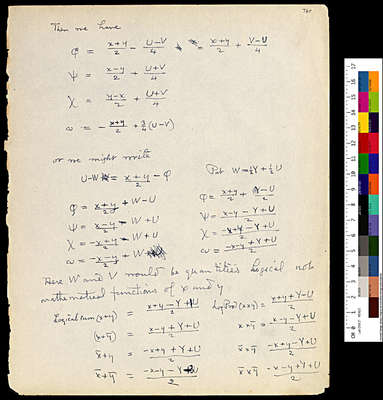 Then we have
φ = x+y/2 - U-V/4 = x+y/2 + V-U/4
ψ = x-y/2 + U+V/4
χ = y-x/2 + U+V/4
ω = - x+y/2 + 3/4(U-V)
or we might write
U-W = x+y/2 - φ
Put W=½Y+½U
φ = x+y/2 + W-U
ψ = x-y/2 + W+U
χ = -x+y/2 + W+U
ω = -x-y/2 + W
φ = x+y/2 + Y-U/2
ψ = x-y-Y+U/2
χ = -x+y-Y+U/2
ω = -x-y+Y+U/2
Here W and V would be quantities logical not
mathematical functions of x and y
Logical sum (x+y) = x+y-Y+U/2
(x+y̅) = x-y+Y+U/2
x̅+y = -x+y+Y+U/2
x̅+y̅ = -x-y-Y+U/2
Log Prod (x×y) = x+y+Y-U/2
x×y̅ = x-y-Y+U/2
x̅×y = -x+y-Y+U/2
x̅×y̅ = -x-y+Y+U/2